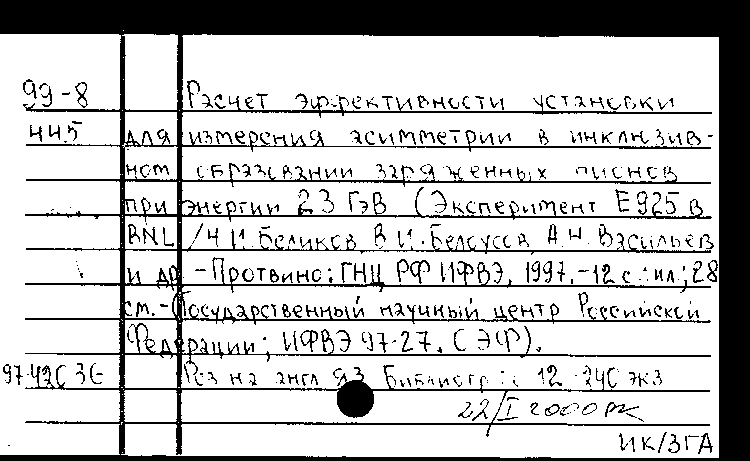 99-8 Расчет эффективности установки
445 для измерения асимметрии в инклюзив-
ном образовании заряженных пионов
при энергии 23 ГэВ (Эксперимент Е925 в
BNL /Н И. Беликов, В И. Белоусов, А.Н. Васильев
и др - Протвино: ГНЦ РФ ИФВЭ, 1997. - 12 с.: ил; 28
см. - (Государственный научный центр Российской
Федерации; ИФВЭ 97-27. ОЭФ).
Рез на англ яз Библиогр.: с 12 240 экз
22/I 2000 РК
ИК/ЗГА